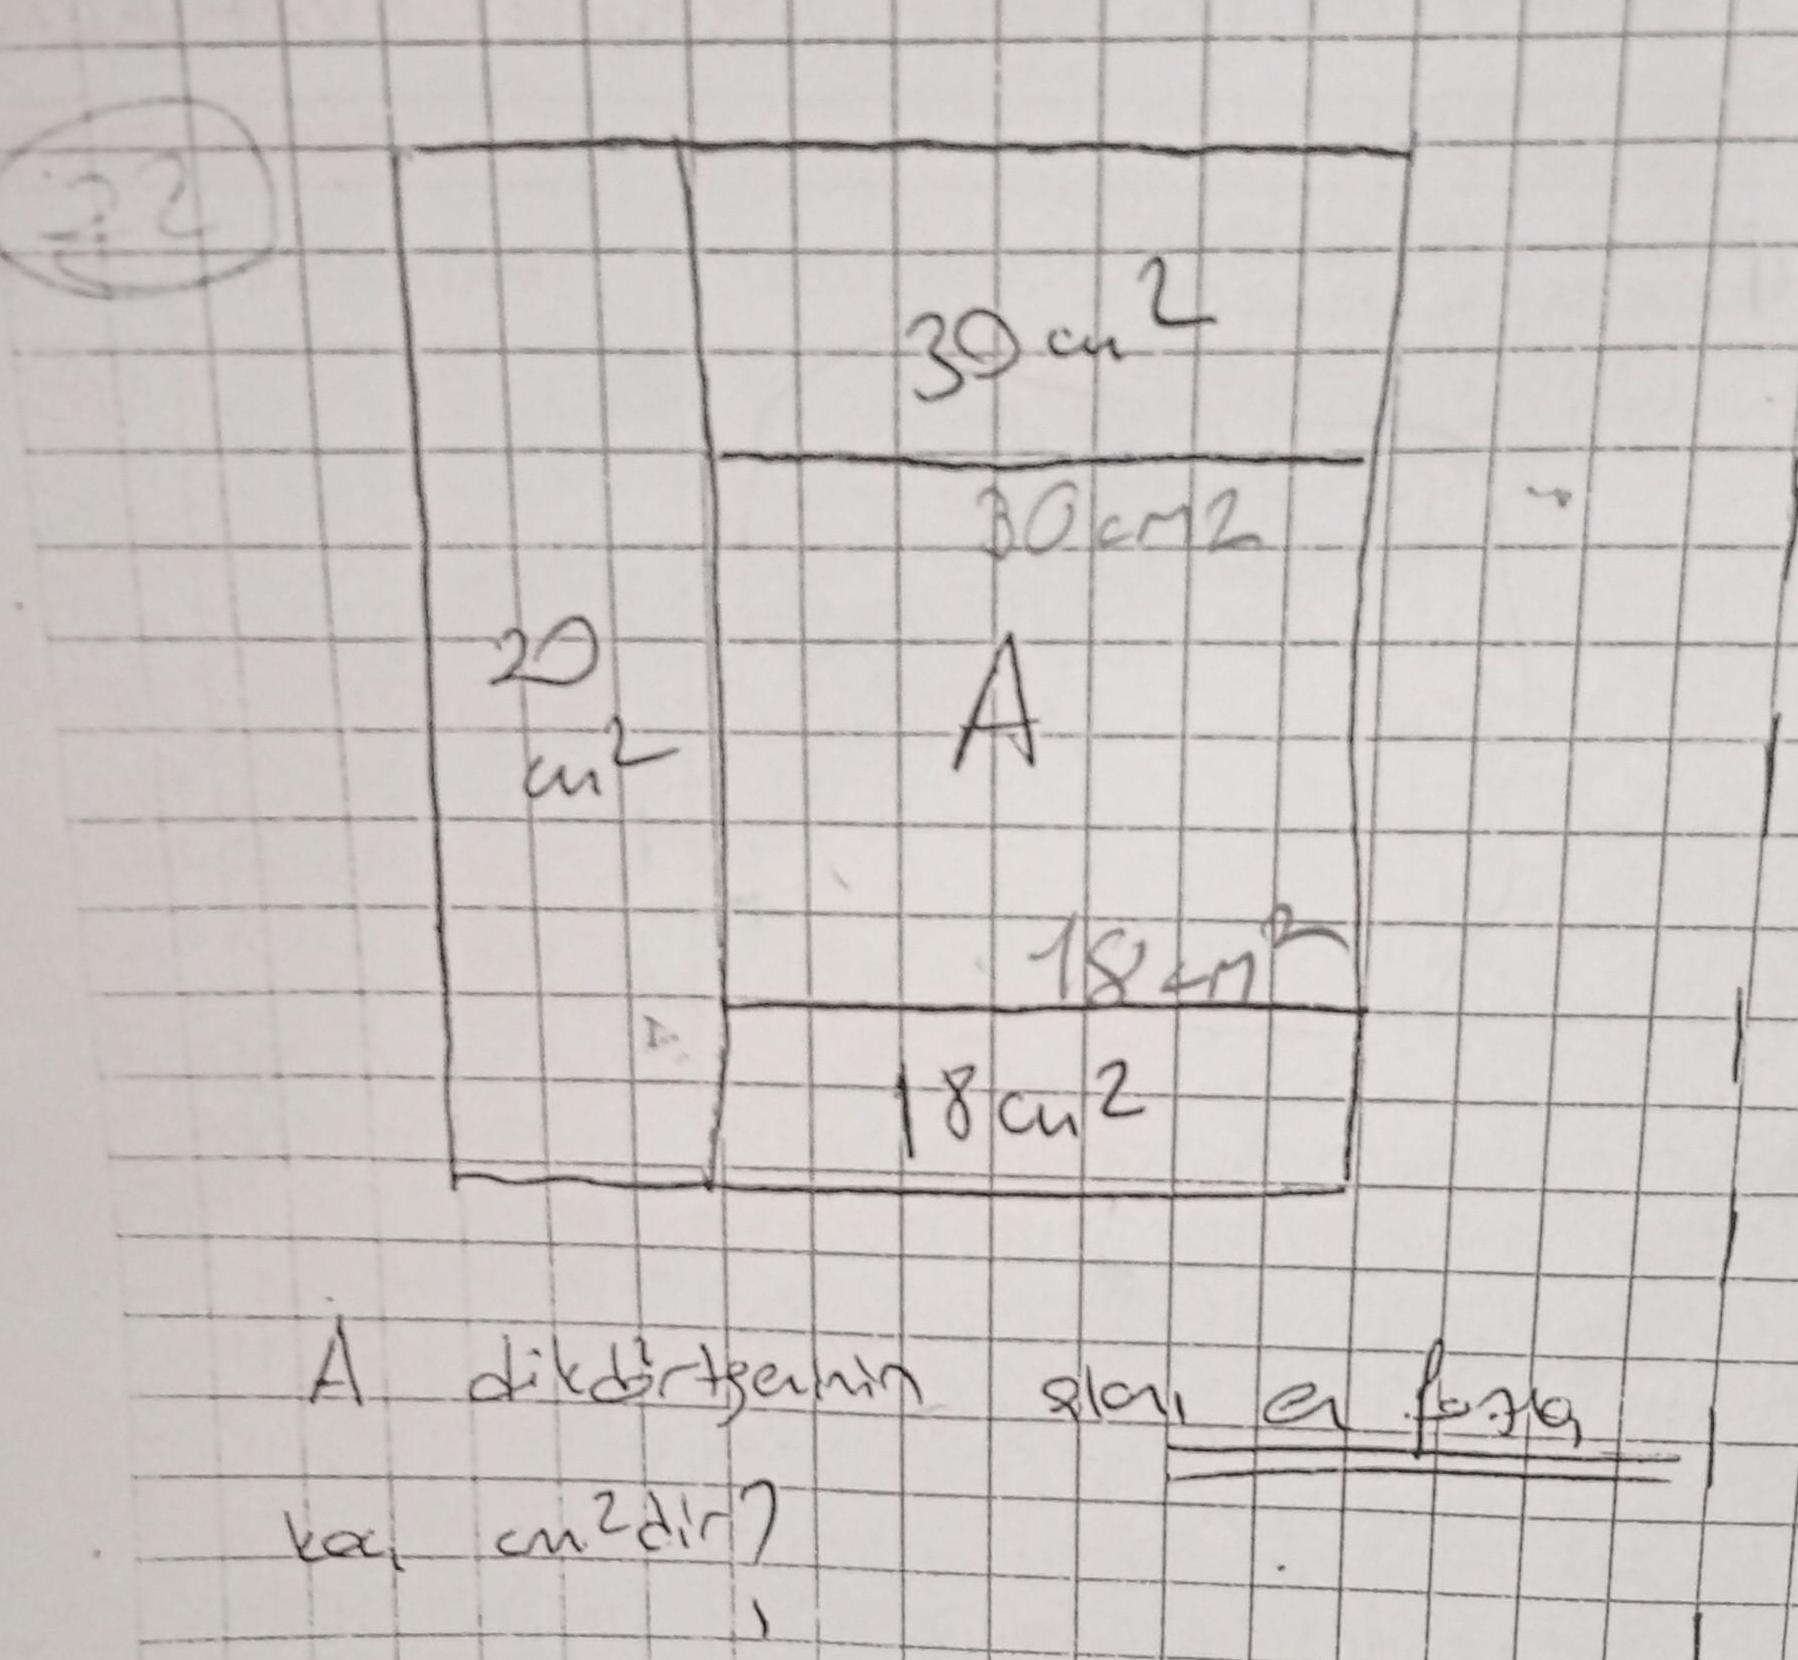 22
30 cm²
30 cm2
20
cm²
A
18 cm²
18 cm2
A dikdörtgeninin alanı en fazla
kaç cm²dir?